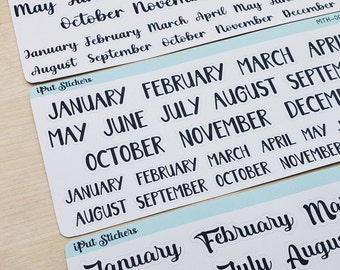 May
October November
January February March April May June
August September October November December
MTH-0
iPut Stickers
JANUARY FEBRUARY MARCH
MAY JUNE JULY AUGUST
OCTOBER NOVEMBER
JANUARY FEBRUARY MARCH APRIL MAY
AUGUST SEPTEMBER OCTOBER NOVEMBER
iPut Stickers
January February
August